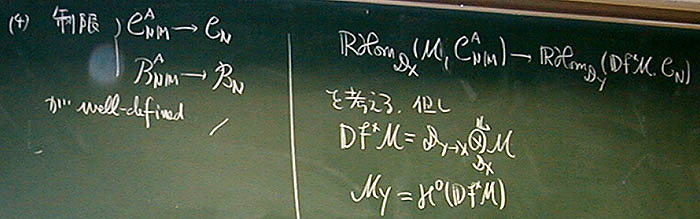 (4) 制限 { C^A_{N|M} → C_N
B^A_{N|M} → B_N
が well-defined
RHom_{D_X}(M, C^A_{N|M}) → RHom_{D_Y}(Df*M, C_N)
を考える. 但し
Df*M = D_{Y→X} ⊗^L_{D_X} M
M_Y = H^0(Df*M)